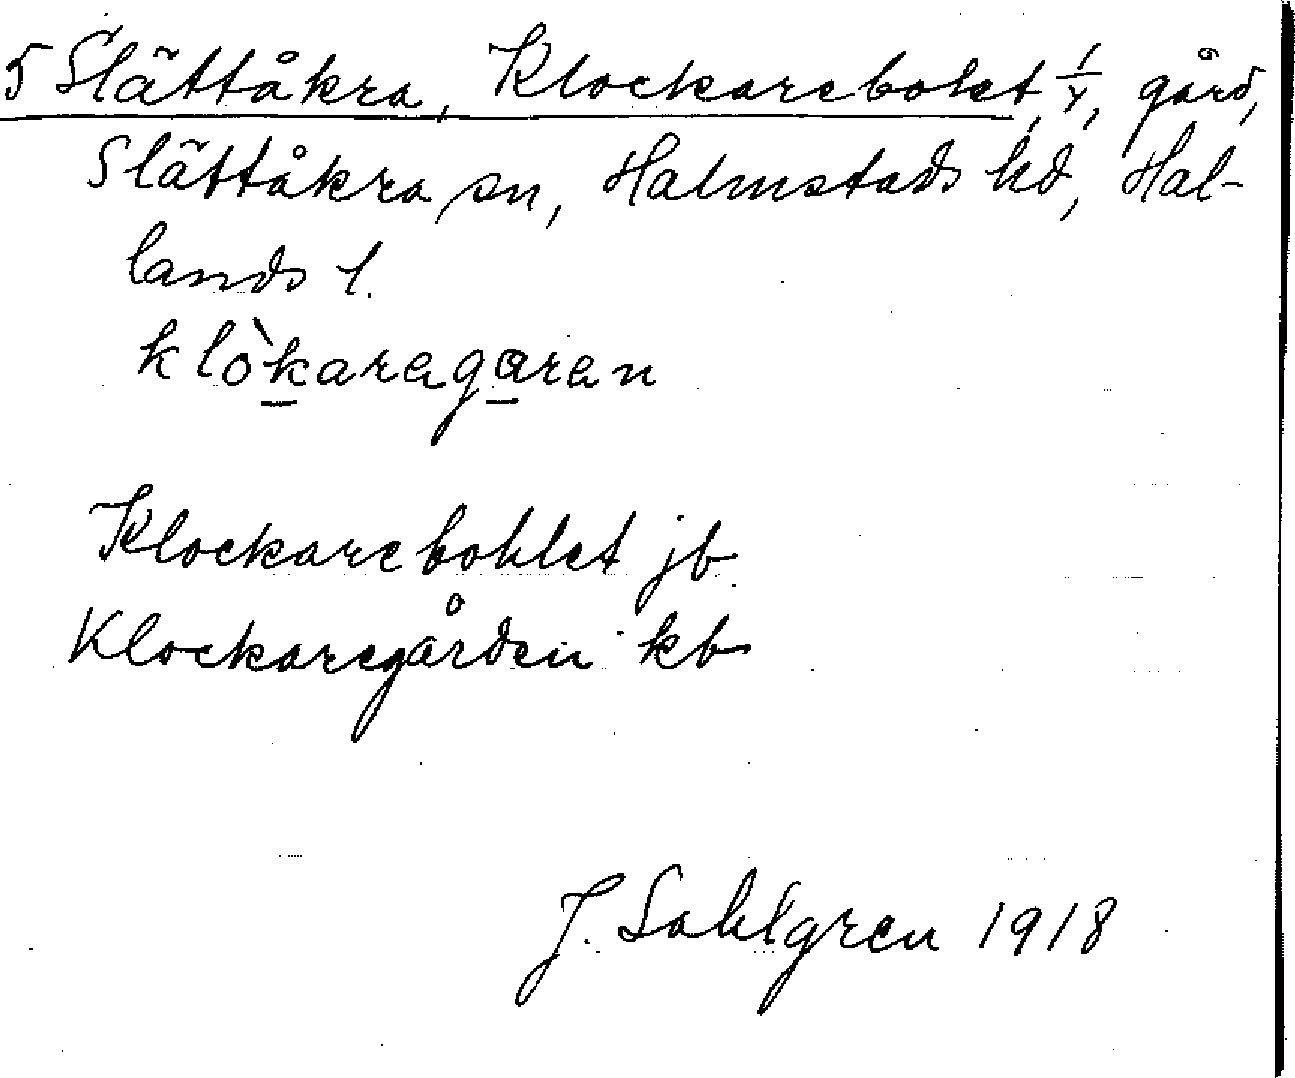 5 Slättåkra, Klockarebolet, 1/4, gård,
Slättåkra sn, Halmstads hd, Hal-
lands l.
klo`karagaran
Klockarebohlet jb
Klockaregården kb
J. Sahlgren 1918